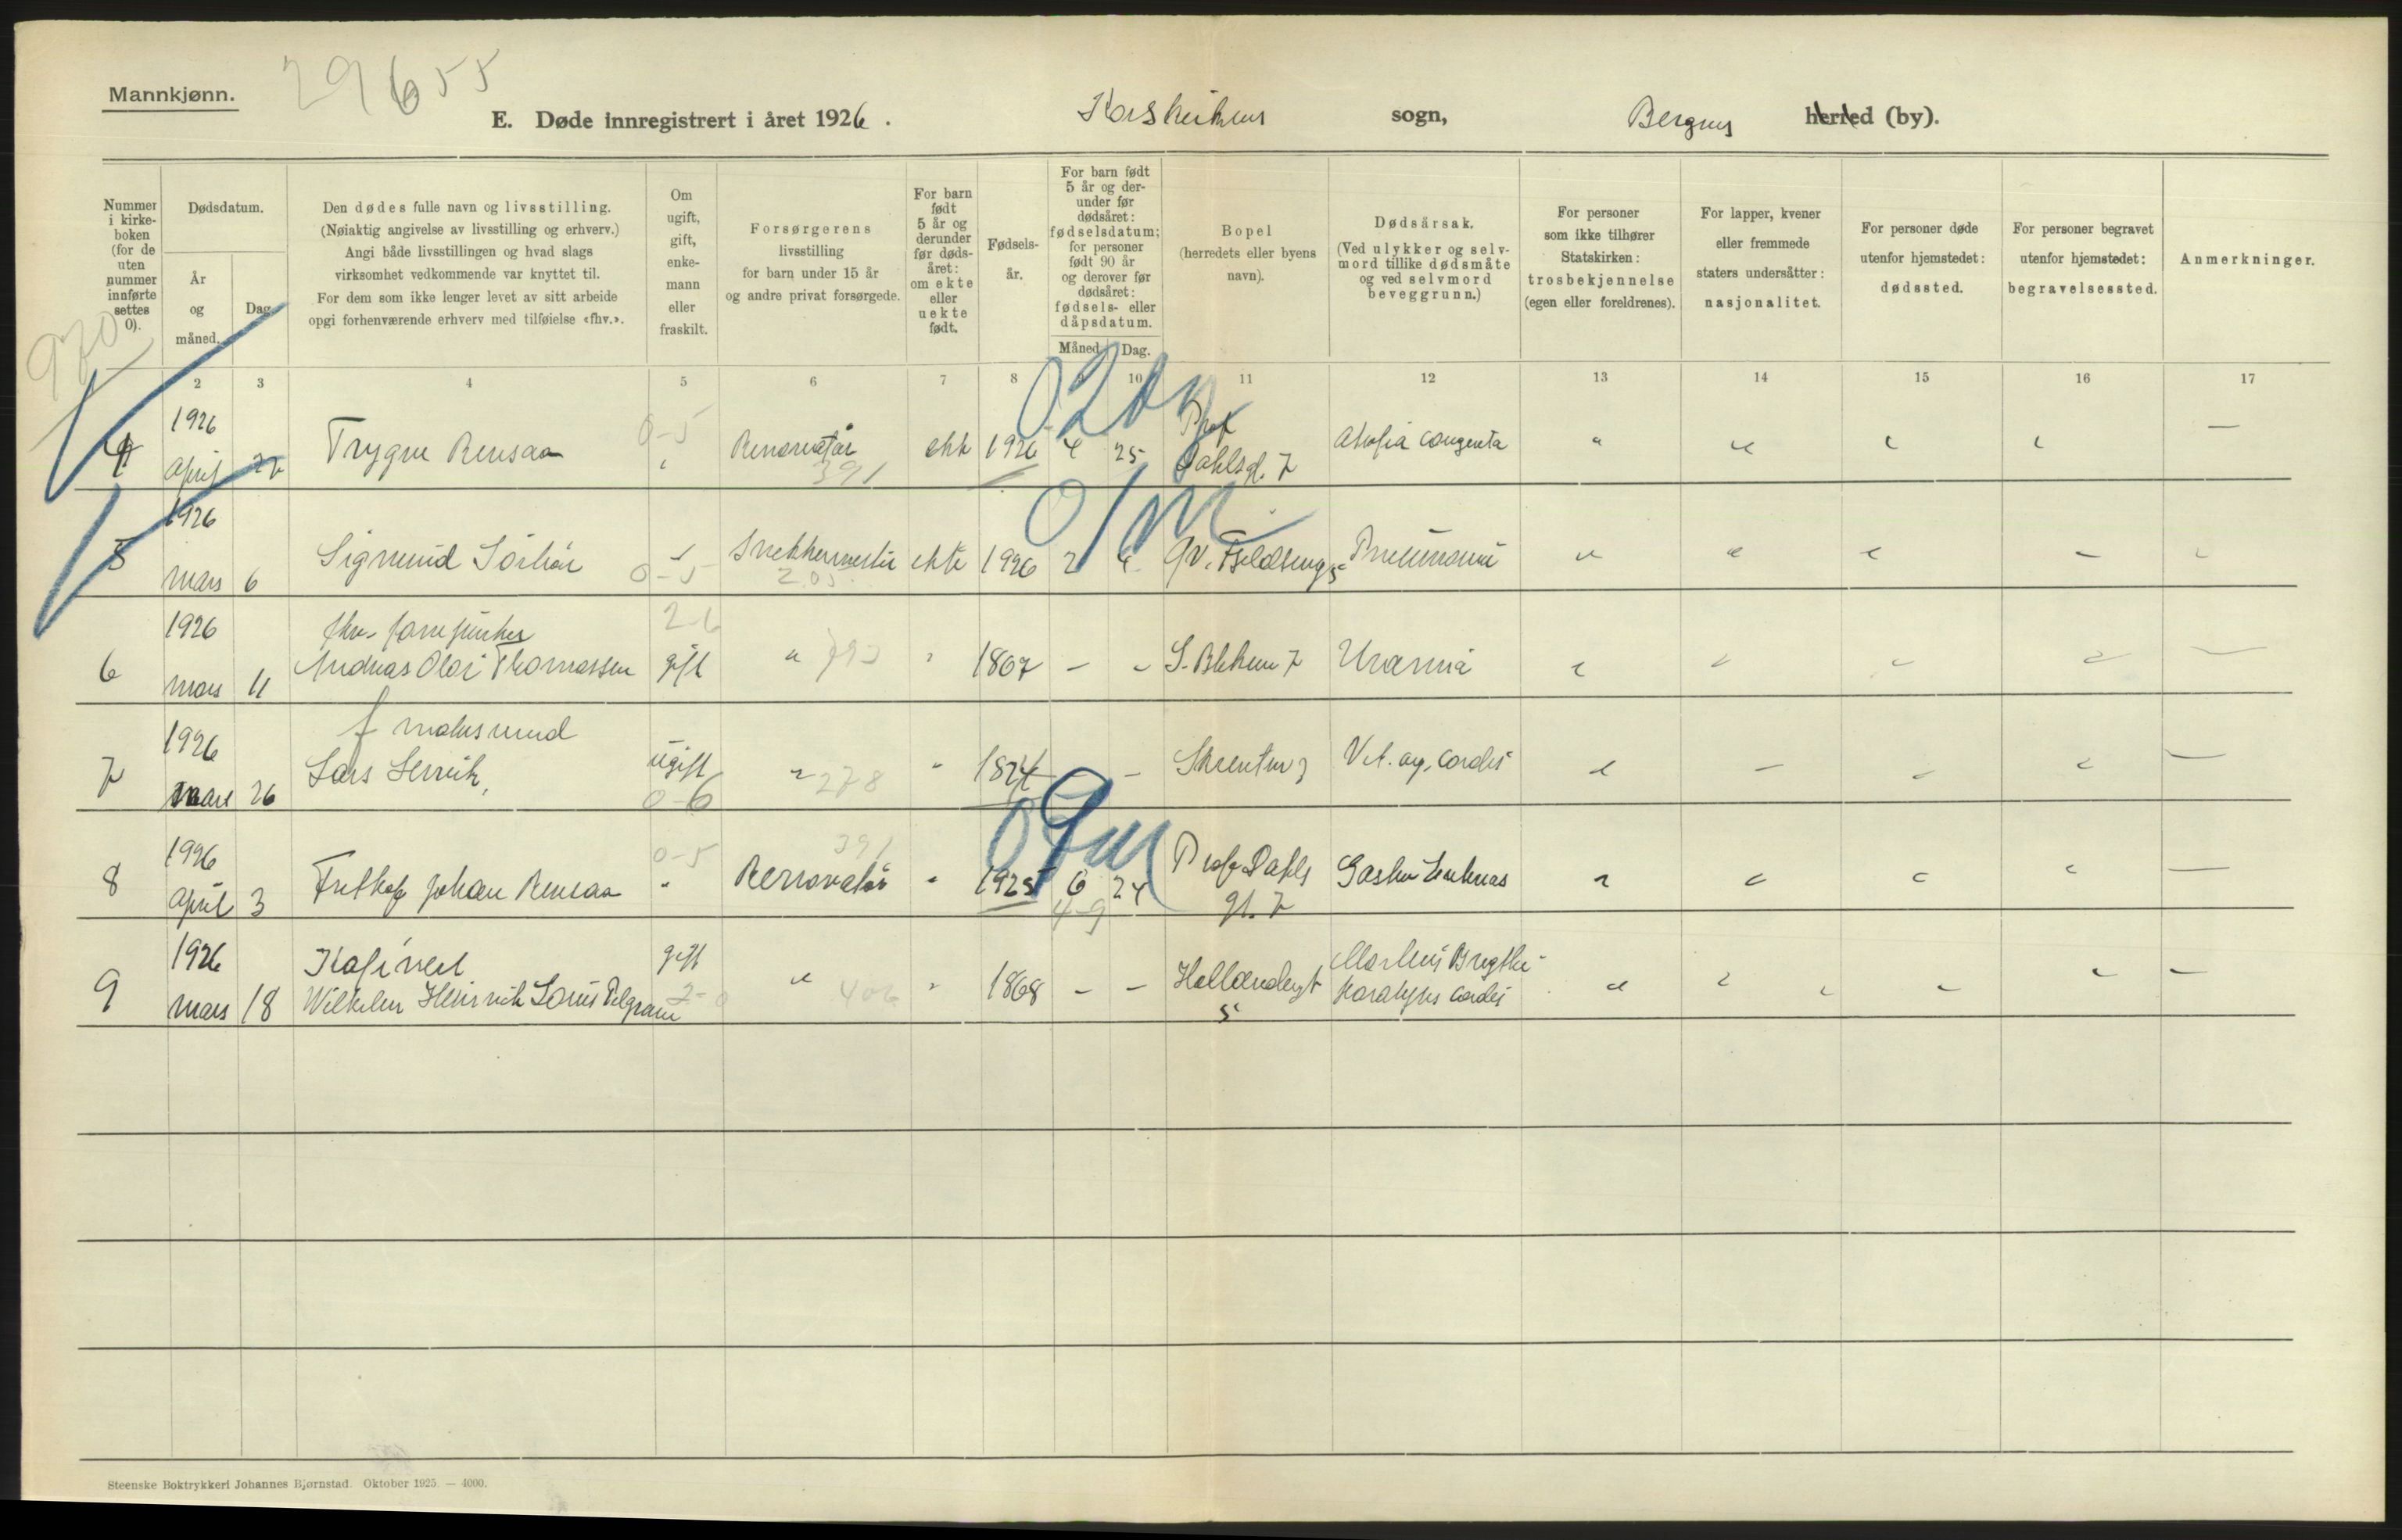 29655
Mannkjønn.
E. Døde innregistrert i året 1926. Korskirkens sogn, Bergens herred (by).
Nummer i kirke-boken (for de uten nummer innførte settes 0).
Dødsdatum.
År og måned.
Dag.
Den dødes fulle navn og livsstilling.
(Nøiaktig angivelse av livsstilling og erhverv.)
Angi både livsstillingen og hvad slags
virksomhet vedkommende var knyttet til.
For dem som ikke lenger levet av sitt arbeide
opgi forhenværende erhverv med tilføielse «fhv.».
Om ugift, gift, enke-mann eller fraskilt.
Forsørgerens
livsstilling
for barn under 15 år
og andre privat forsørgede.
For barn født 5 år og derunder før døds-året: om ekte eller uekte født.
Fødsels-år.
For barn født 5 år og der-under før dødsåret: fødselsdatum; for personer født 90 år og derover før dødsåret: fødsels- eller dåpsdatum.
Måned.
Dag.
Bopel
(herredets eller byens
navn).
Dødsårsak.
(Ved ulykker og selv-
mord tillike dødsmåte
og ved selvmord
beveggrunn.)
For personer
som ikke tilhører
Statskirken:
trosbekjennelse
(egen eller foreldrenes).
For lapper, kvener
eller fremmede
staters undersåtter:
nasjonalitet.
For personer døde
utenfor hjemstedet:
dødssted.
For personer begravet
utenfor hjemstedet:
begravelsessted.
Anmerkninger.
970
2 3 4 5 6 7 8 9 10 11 12 13 14 15 16 17
02m
4 1926 April Trygve Rensaa 0-5 Renovatør 391 ekte 1926 4 25 Prof Dahlsgt. 7 Atrofia congenita " " " " —
01m
5 1926 mars 6 Sigmund 0-5 Snekkermester 205 ekte 1926 2 4 Pneumoni " " " — "
6 1926 mars 11 fhv. Andreas Olai Thomassen 2-6 gift " " 1867 — " S. Blekevn 7 Uræmia " " " " —
7 1926 mars 26 f matrosmund Lars ugift 0-6 " 278 " 1874 — — Skrenten 3 Vit. org. cordis " — " " —
09m
8 1926 April 3 Fritjof Johan Rensaa 0-5 " Renovatør 391 " 1925 6 24 4-9 Prof Dahls gt. 7 " " " " —
9 1926 mars 18 Wilhelm Heinrich Louis Pelgram gift 2-0 " 406 " 1868 — — Hollendergt 5 Morbus Brigthi - Paralysis cordis " " " " " —
Steenske Boktrykkeri Johannes Bjørnstad. Oktober 1925. — 4000.